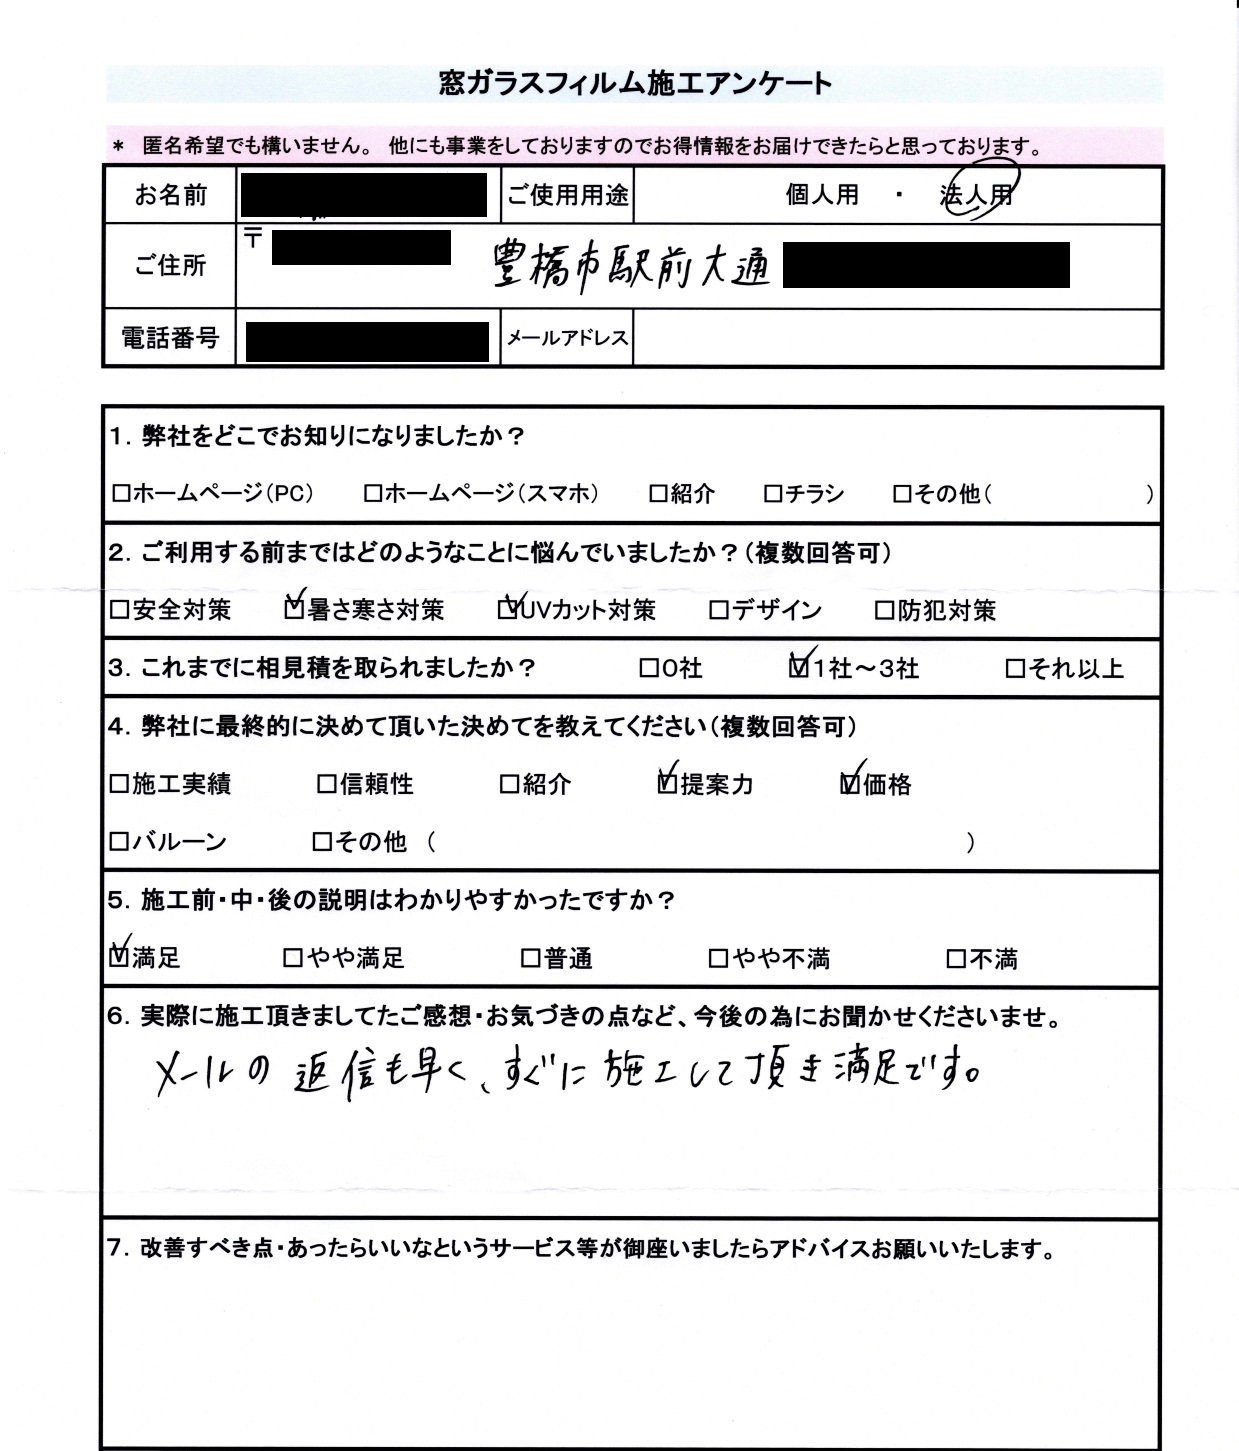 窓ガラスフィルム施工アンケート
* 匿名希望でも構いません。 他にも事業をしておりますのでお得情報をお届けできたらと思っております。
お名前 ご使用用途 個人用 ・ 法人用
ご住所 〒 豊橋市駅前大通
電話番号 メールアドレス
1. 弊社をどこでお知りになりましたか?
□ホームページ(PC) □ホームページ(スマホ) □紹介 □チラシ □その他( )
2. ご利用する前まではどのようなことに悩んでいましたか?(複数回答可)
□安全対策 ☑暑さ寒さ対策 ☑UVカット対策 □デザイン □防犯対策
3. これまでに相見積を取られましたか? □0社 ☑1社~3社 □それ以上
4. 弊社に最終的に決めて頂いた決めてを教えてください(複数回答可)
□施工実績 □信頼性 □紹介 ☑提案力 ☑価格
□バルーン □その他 ( )
5. 施工前・中・後の説明はわかりやすかったですか?
☑満足 □やや満足 □普通 □やや不満 □不満
6. 実際に施工頂きましてたご感想・お気づきの点など、今後の為にお聞かせくださいませ。
メールの返信も早く、すぐに施工して頂き満足です。
7. 改善すべき点・あったらいいなというサービス等が御座いましたらアドバイスお願いいたします。